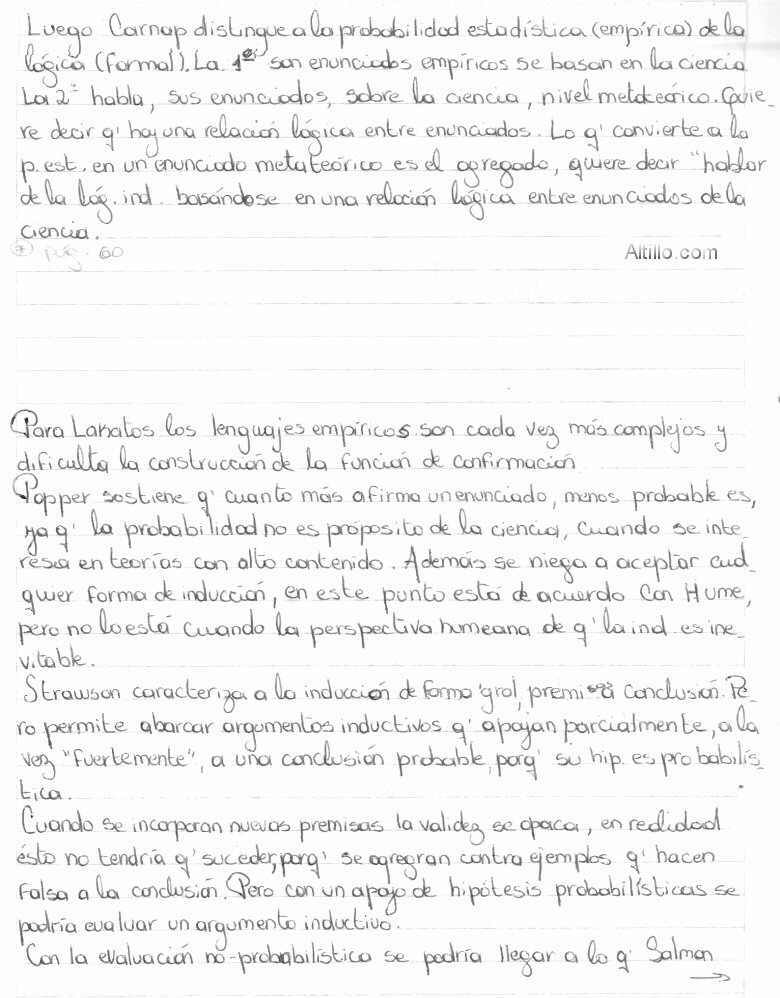 Luego Carnap distingue a la probabilidad estadística (empírica) de la
lógica (formal). La 1era son enunciados empíricos se basan en la ciencia
La 2ª habla, sus enunciados, sobre la ciencia, nivel metateórico. Quie_
re decir q' hay una relación lógica entre enunciados. Lo q' convierte a la
p. est. en un enunciado metateórico es el agregado, quiere decir "hablar
de la lóg. ind. basándose en una relación lógica entre enunciados de la
ciencia.
pág. 60
Altillo.com
Para Lakatos los lenguajes empíricos son cada vez más complejos y
dificulta la construcción de la función de confirmación
Popper sostiene q' cuanto más afirma un enunciado, menos probable es,
ya q' la probabilidad no es proposito de la ciencia, cuando se inte_
resa en teorías con alto contenido. Además se niega a aceptar cual_
quier forma de inducción, en este punto está de acuerdo con Hume,
pero no lo está cuando la perspectiva humeana de q' la ind. es ine_
vitable.
Strawson caracteriza a la inducción de forma gral, premisa conclusión. Pe_
ro permite abarcar argumentos inductivos q' apoyan parcialmente, a la
vez "fuertemente", a una conclusión probable, porq' su hip. es probabilís_
tica.
Cuando se incorporan nuevas premisas la validez se opaca, en realidad
ésto no tendría q' suceder, porq' se agregran contra ejemplos q' hacen
falsa a la conclusión. Pero con un apoyo de hipótesis probabilísticas se
podría evaluar un argumento inductivo.
Con la evaluación no-probabilística se podría llegar a lo q' Salmon